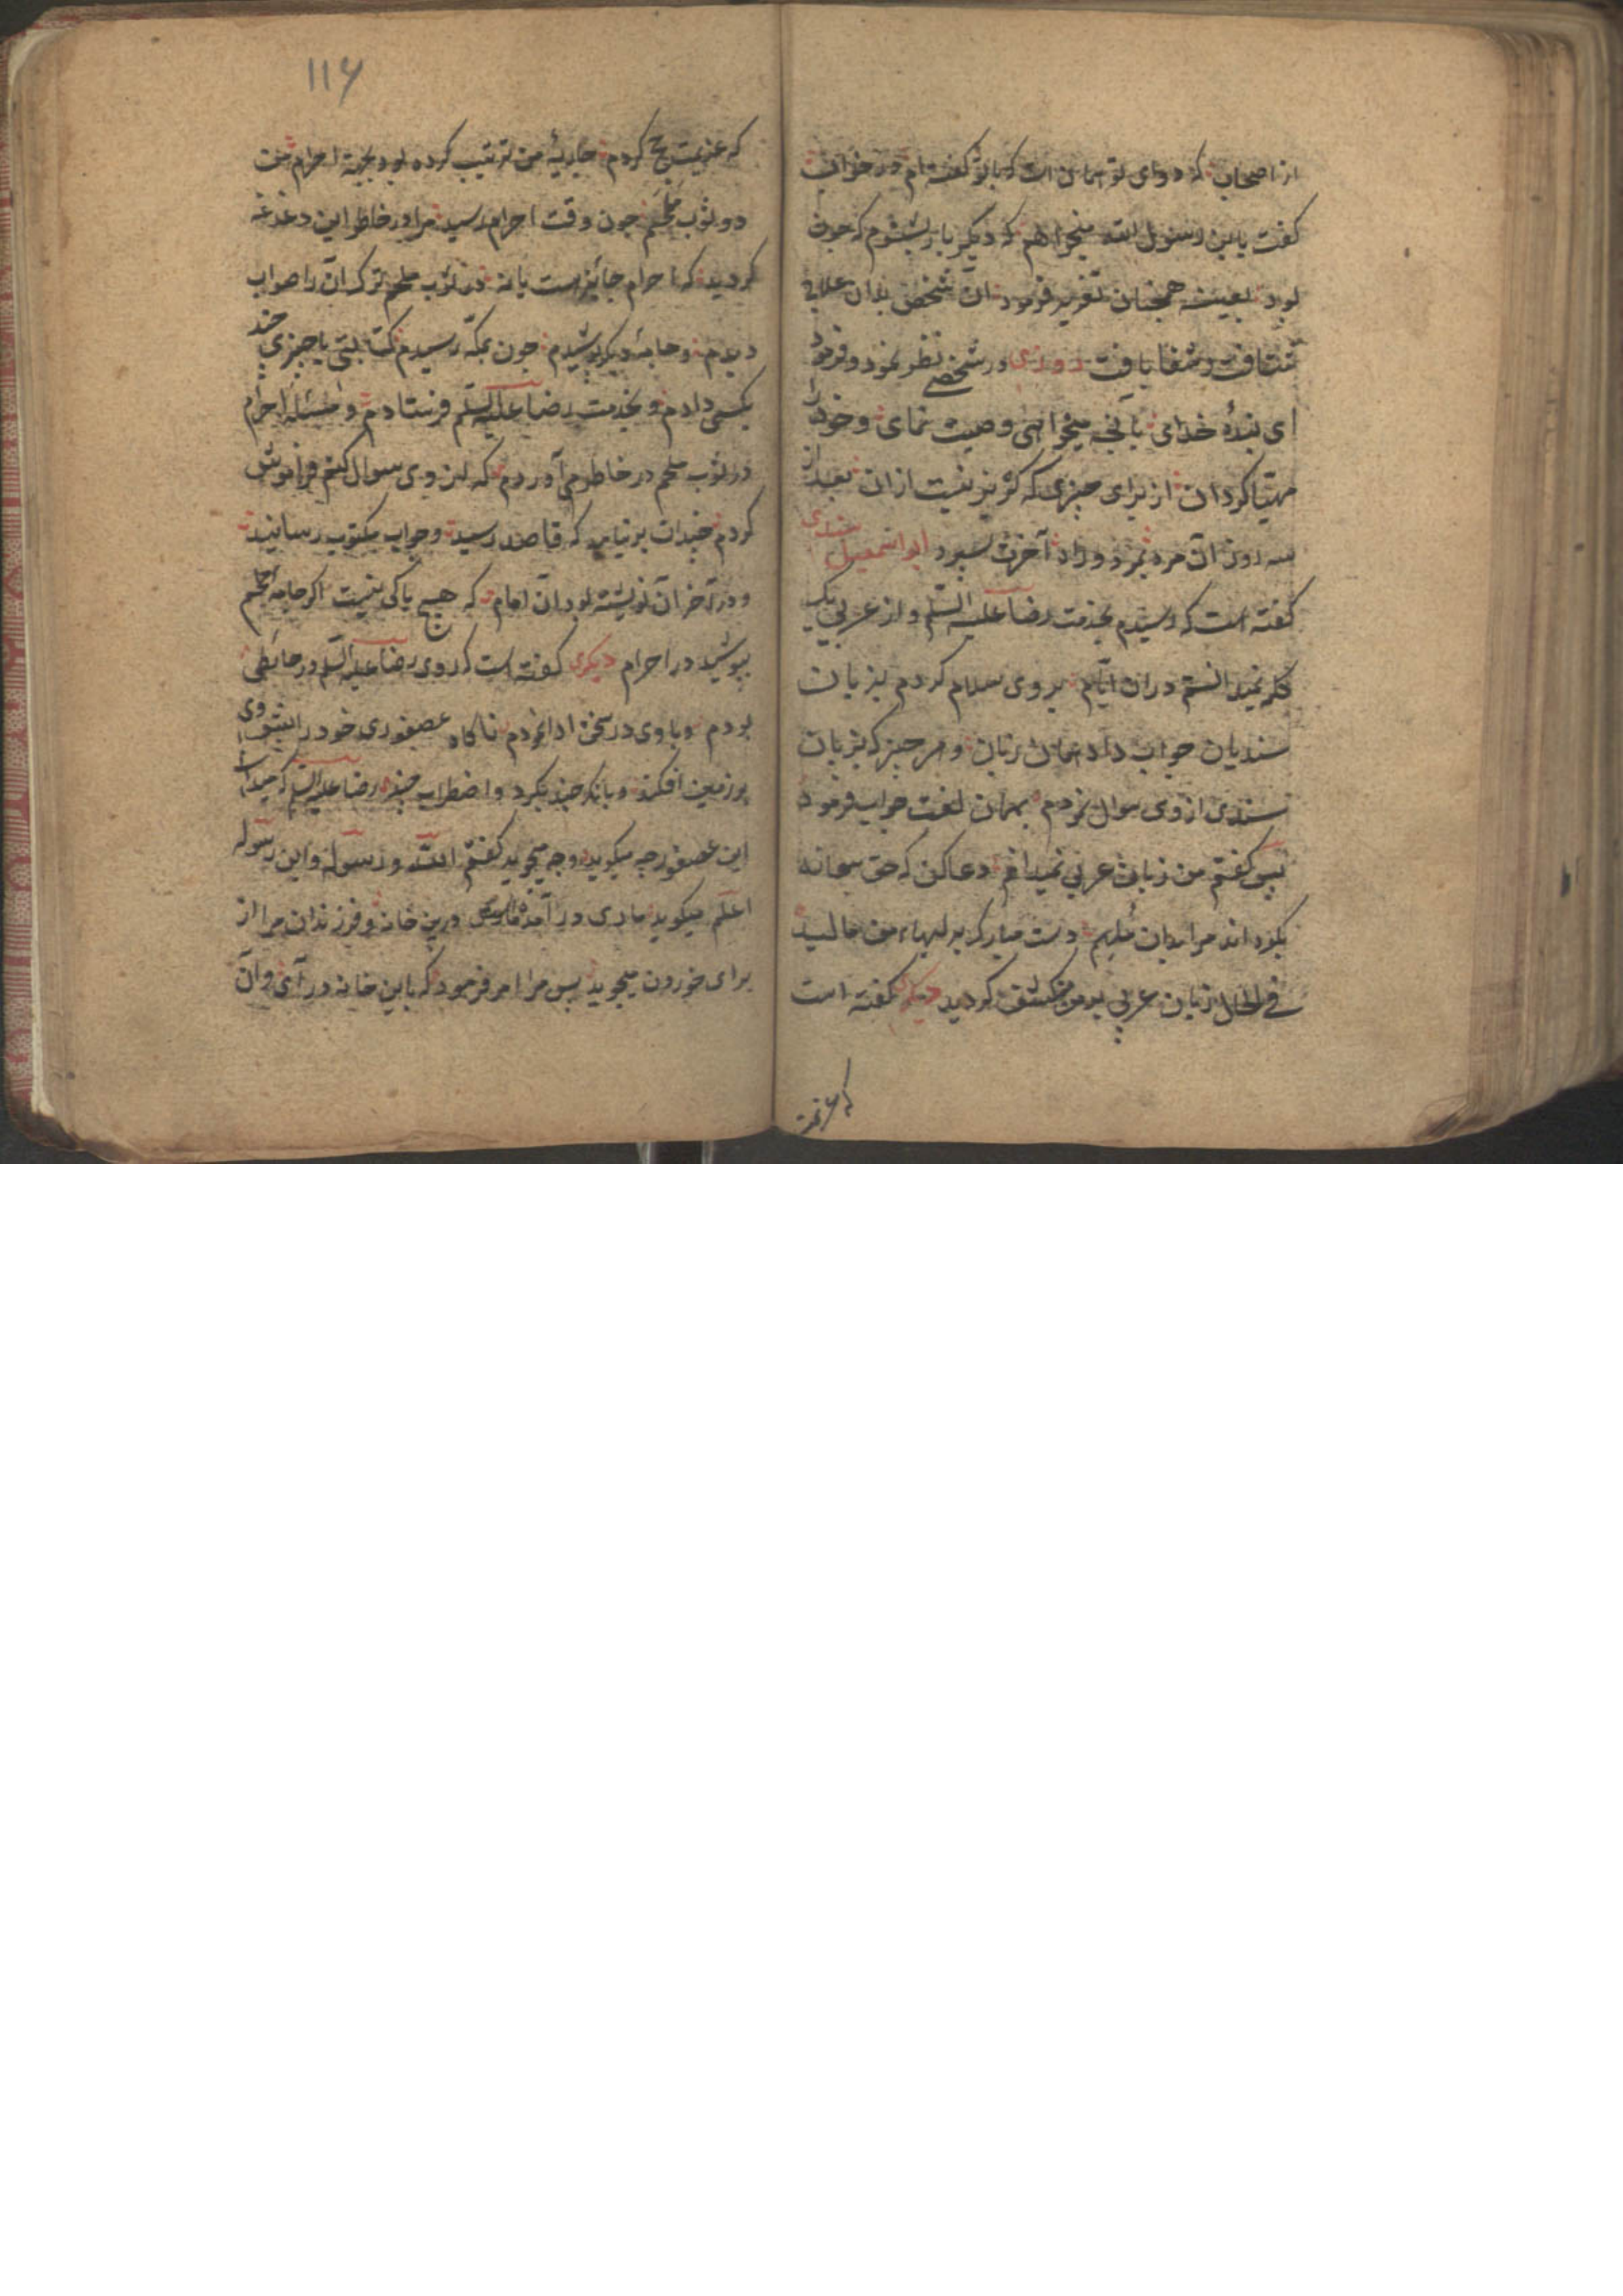 از اصحاب که دوای تو همان است که با تو گفته ام در خواب
گفت یا بن رسول الله میخواهم که دیگر بار بشنوم که چون
بود بعینه همچنان تقریر فرمود آن شخص بدان علاج
شتافت و شفا یافت روزی در شخصی نظر نمود و فرمود
ای بندهٔ خدای بآنچه میخواهی وصیت نمای و خود را
مهیا کردان از برای چیزی که کزیر نیست ازان بعد از
سه روز آن مرد بمرد و راه آخرت سپرد ابو اسمعیل سندی
کفته است که رسیدم بخدمت رضا علیه السلم و از عربی یک
کلمه نمیدانستم دران ایام بر وی سلام کردم بزبان
سندیان جواب داد بهمان زبان و هر چیز که بزبان
سندی از وی سوال کردم بهمان لغت جواب فرمود
پس کفتم من زبان عربی نمیدانم دعا کن که حق سبحانه
مرا بدان ملهم دست مبارک بر لبهاء من مالید
فی الحال زبان عربی بر من منکشف کردید دیگر کفته است
که عزیمت
۱۱۶
که عزیمت حج کردم جاریهٔ من ترتیب کرده بود بجهة احرام من
دو ثوب ملحم چون وقت احرام رسید مرا در خاطر این دغدغه
کردید که احرام جائز است یا نه در ثوب ملحم ترک آن را صواب
دیدم و جامهٔ دیگر پوشیدم چون بمکه رسیدم کتابتی با چیزی چند
بکسی دادم و بخدمت رضا علیه السلم فرستادم و مسئله احرام
در ثوب ملحم در خاطر می آوردم که از وی سوال کنم فراموش
کردم چندان بر نیامد که قاصد رسید و جواب مکتوب رسانید
و در آخر آن نوشته بود آن امام که هیچ باکی نیست اکر جامه ملحم
بپوشید در احرام دیگری کفته است که روی رضا علیه السلم در حائطی
بودم و با وی در سخن ادا نمودم ناکاه عصفوری خود را پیش وی
بر زمین افکند و بانک چند بکرد و اضطراب چند رضا علیه السلم که میدانی
این عصفور چه میکوید و چه میجوید کفتم الله و رسوله و ابن رسوله
اعلم میکوید ماری در آمده درین خانه و فرزندان مرا از
برای خوردن میجوید پس مرا امر فرمود که باین خانه در آی و آن